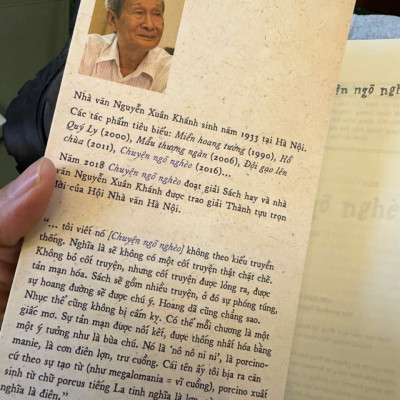 Nhà văn Nguyễn Xuân Khánh sinh năm 1933 tại Hà Nội.
Các tác phẩm tiêu biểu: Miền hoang tưởng (1990), Hồ
Quý Ly (2000), Mẫu thượng ngàn (2006), Đội gạo lên
chùa (2011), Chuyện ngõ nghèo (2016)...
Năm 2018 Chuyện ngõ nghèo đoạt giải Sách hay và nhà
văn Nguyễn Xuân Khánh được trao giải Thành tựu trọn
đời của Hội Nhà văn Hà Nội.
"... tôi viết nó [Chuyện ngõ nghèo] không theo kiểu truyền
thống. Nghĩa là sẽ không có một cốt truyện thật chặt chẽ.
Không bỏ cốt truyện, nhưng cốt truyện được lỏng ra, được
tản mạn hóa. Sách sẽ gồm nhiều truyện, ở đó sự phóng túng,
sự hoang đường sẽ được chú ý. Hoang dã cũng chẳng sao.
Nhục thể cũng không bị cấm kỵ. Có thể mỗi chương là một
giấc mơ. Sự tản mạn được nối kết, được thống nhất hóa bằng
một ý tưởng như là bùa chú. Nó là 'nô nô ni ni', là porcino-
manie, là cơn điên lợn, trư cuồng. Cái tên ấy tôi bịa ra căn
cứ theo sự tạo từ (như megalomania = vĩ cuồng), porcino xuất
sinh từ chữ porcus tiếng La tinh nghĩa là lợn
nghĩa là điên."
ện ngõ nghè